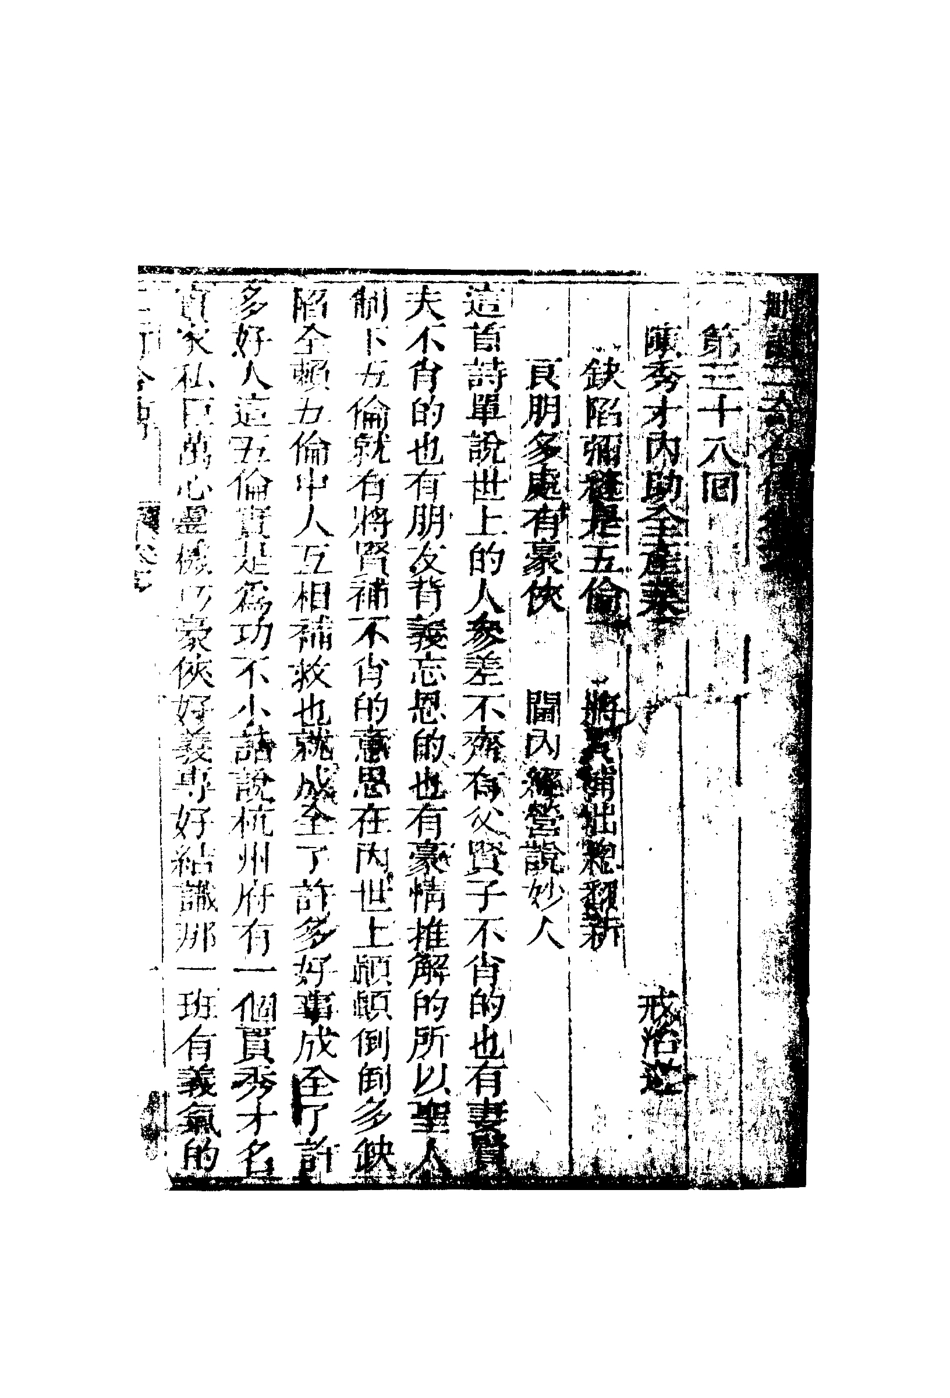 二奇合傳
第三十八回
陳秀才內助全產業 戒冶遊
缺陷彌縫是五倫 將賢補出總翻新
良朋多處有豪俠 閫內經營說妙人
這首詩單說世上的人參差不齊有父賢子不肖的也有妻賢
夫不肖的也有朋友背義忘恩的也有豪情推解的所以聖人
制下五倫就有將賢補不肖的意思在內世上顛顛倒倒多缺
陷全賴五倫中人互相補救也就成全了許多好事成全了許
多好人這五倫實是為功不小話說杭州府有一個賈秀才名
實家私巨萬心靈機巧豪俠好義專好結識那一班有義氣的
二奇合傳